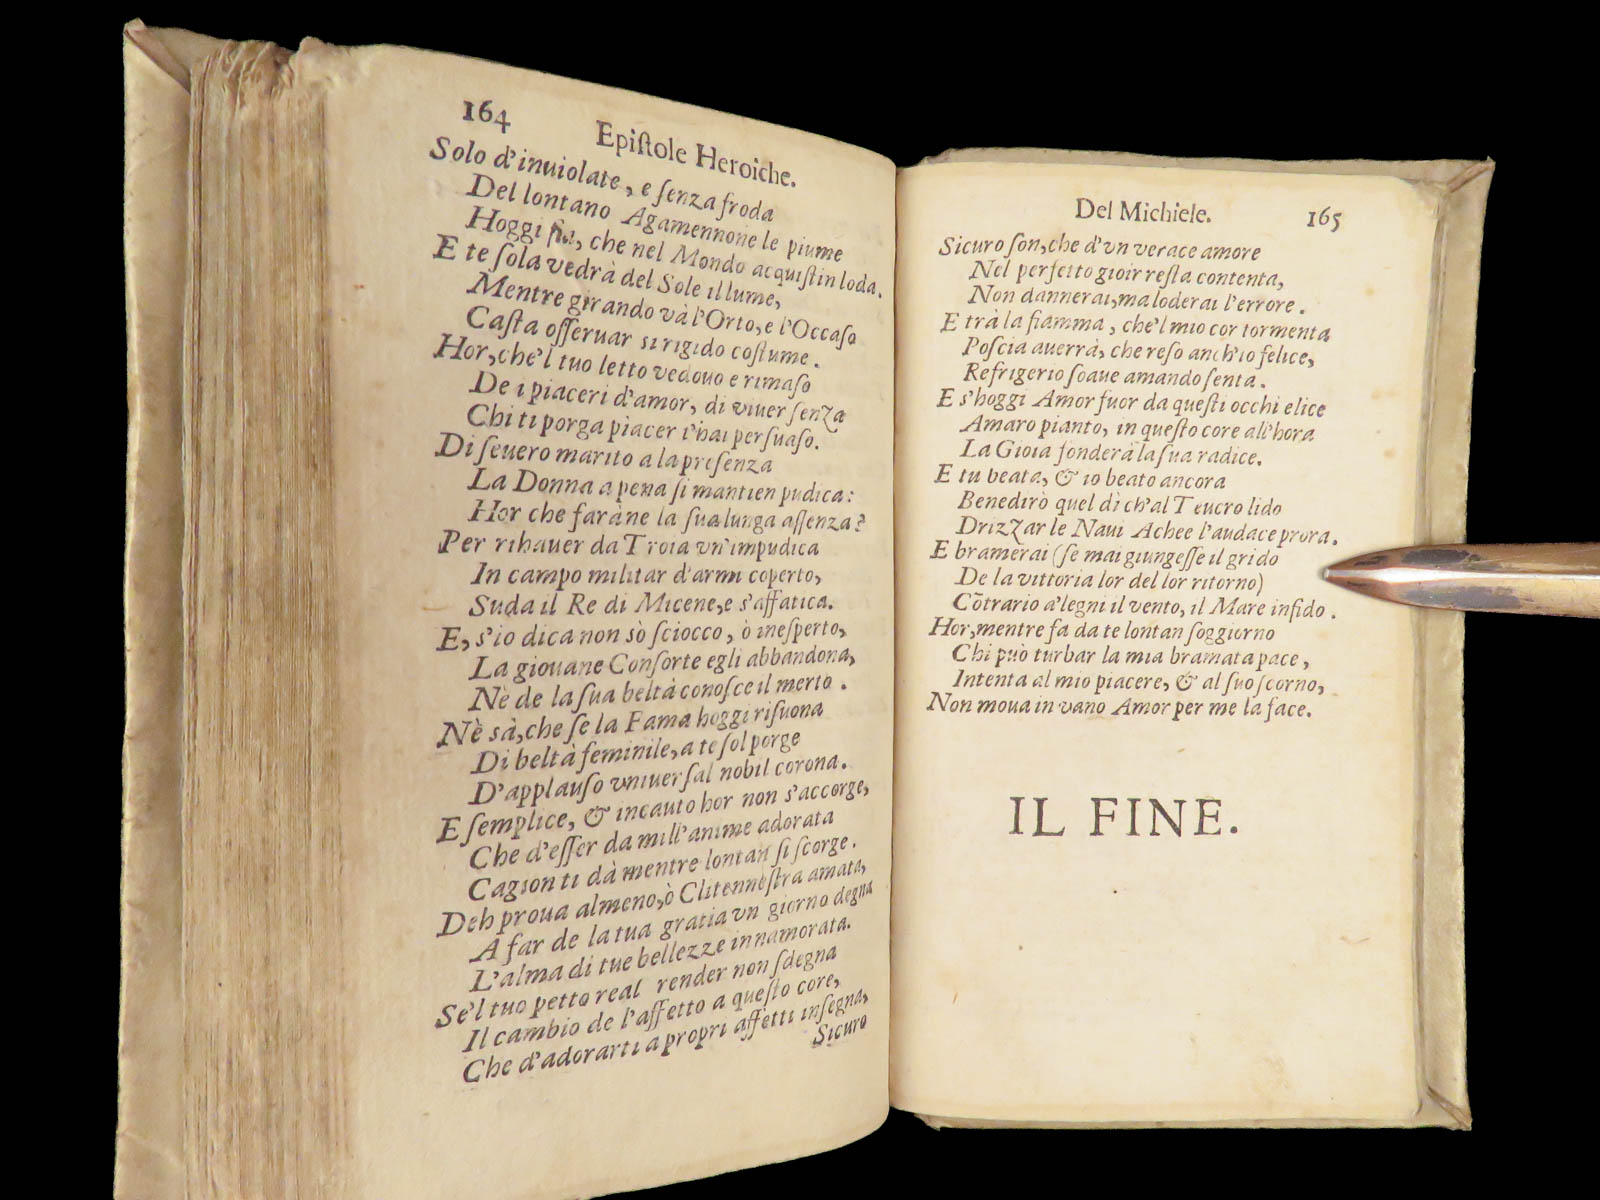 164
Epiſtole Heroiche.
Solo d'inuiolate, e ſenza froda
Del lontano Agamennone le piume
Hoggi fia, che nel Mondo acquiſtin loda.
E te ſola vedrà del Sole il lume,
Mentre girando và l'Orto, e l'Occaſo
Caſta oſſeruar si rigido coſtume.
Hor, che'l tuo letto vedouo e rimaſo
De i piaceri d'amor, di viuer ſenza
Chi ti porga piacer t'hai perſuaſo.
Di ſeuero marito a la preſenza
La Donna a pena ſi mantien pudica:
Hor che faràne la ſua lunga aſſenza?
Per rihauer da Troia vn'impudica
In campo militar d'armi coperto,
Suda il Re di Micene, e s'affatica.
E, s'io dica non sò ſciocco, ò ineſperto,
La giouane Conſorte egli abbandona,
Nè de la ſua beltà conoſce il merto.
Nè sà, che ſe la Fama hoggi riſuona
Di beltà feminile, a te ſol porge
D'applauſo vniuerſal nobil corona.
E ſemplice, & incauto hor non s'accorge,
Che d'eſſer da mill'anime adorata
Cagion ti dà mentre lontan ſi ſcorge.
Deh proua almeno, ò Clitenneſtra amata,
A far de la tua gratia vn giorno degna
L'alma di tue bellezze innamorata.
Se'l tuo petto real render non ſdegna
Il cambio de l'affetto a queſto core,
Che d'adorarti a propri affetti inſegna,
Sicuro
Del Michiele.
165
Sicuro ſon, che d'vn verace amore
Nel perfetto gioir reſta contenta,
Non dannerai, ma loderai l'errore.
E trà la fiamma, che'l mio cor tormenta
Poſcia auerrà, che reſo anch'io felice,
Refrigerio ſoaue amando ſenta.
E s'hoggi Amor fuor da queſti occhi elice
Amaro pianto, in queſto core all'hora
La Gioia fonderà la ſua radice.
E tu beata, & io beato ancora
Benedirò quel dì ch'al Teucro lido
Drizzar le Naui Achee l'audace prora.
E bramerai (ſe mai giungeſſe il grido
De la vittoria lor del lor ritorno)
Cōtrario a'legni il vento, il Mare infido.
Hor, mentre fa da te lontan ſoggiorno
Chi può turbar la mia bramata pace,
Intenta al mio piacere, & al ſuo ſcorno,
Non moua in vano Amor per me la face.
IL FINE.